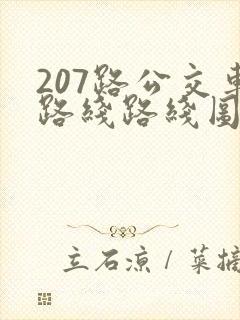 207路公交車
路綫路綫圖
立石凉 / 菜摘